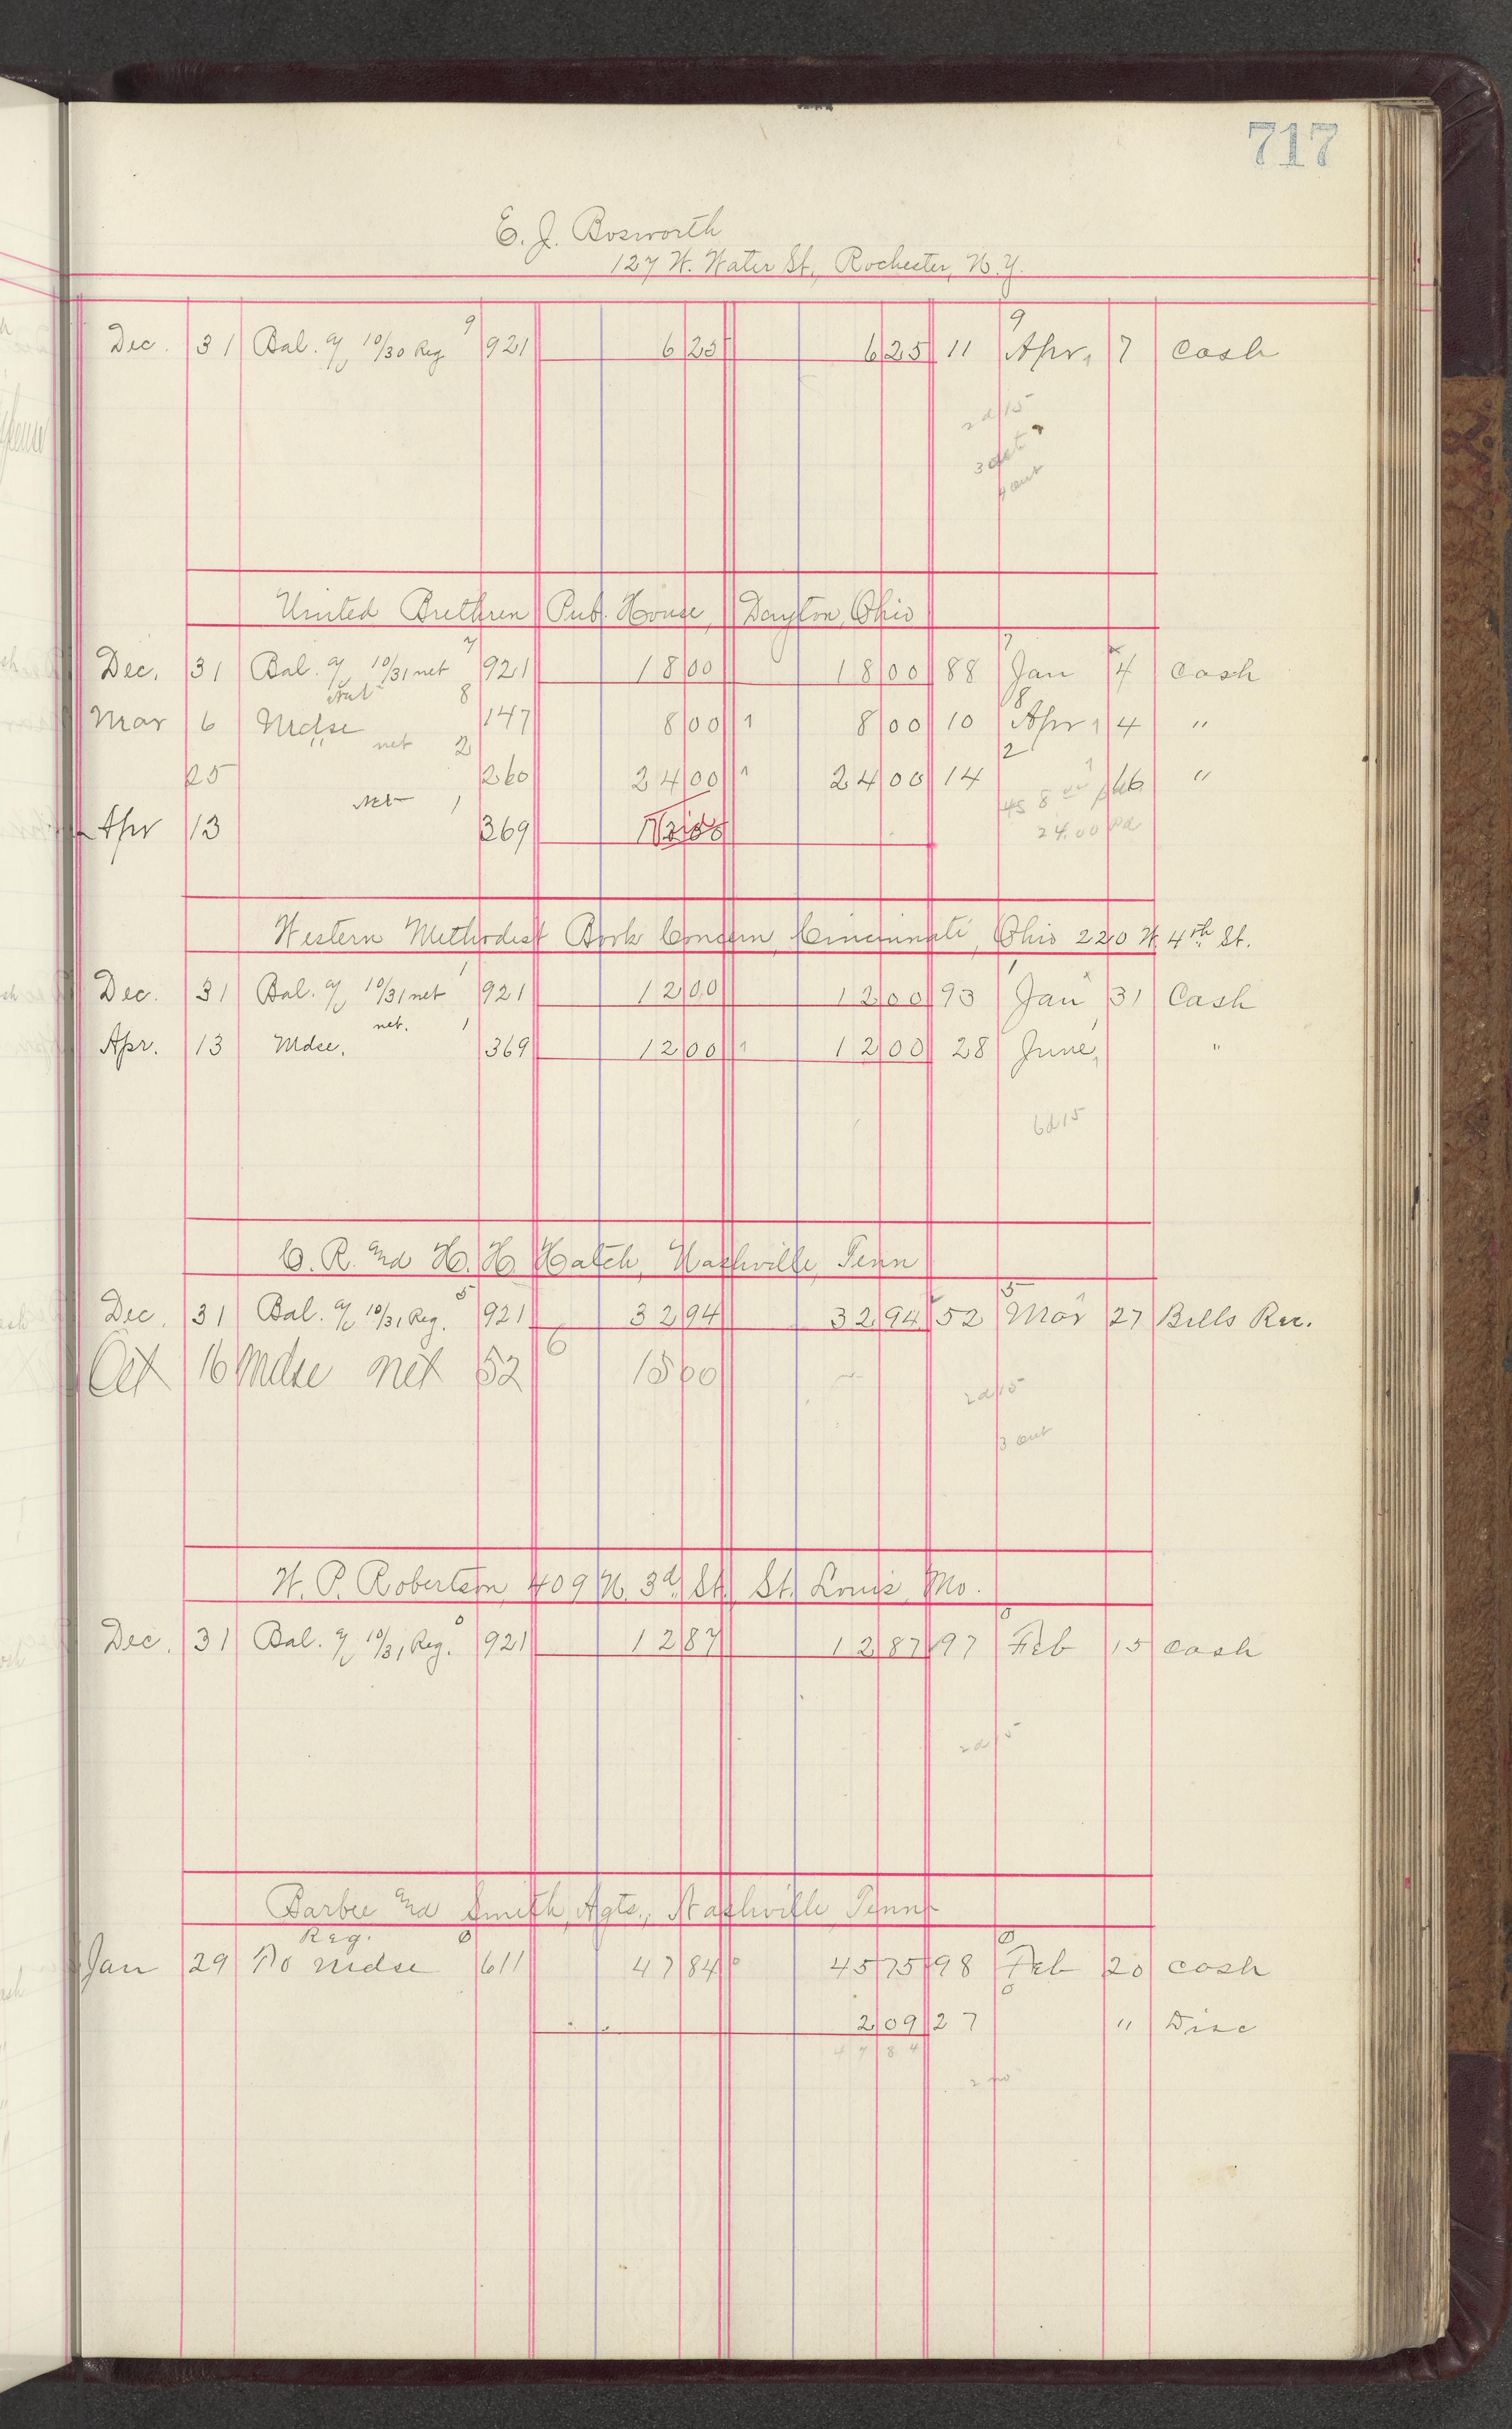 717
E. J. Bosworth
127 W. Water St., Rochester, N.Y.
9 9
Dec. 31 Bal. a/c 10/30 Reg 921 6 25 6 25 11 Apr. 7 Cash
2d/15
3
4 out
United Brethren Pub. House, Dayton, Ohio
7 7
Dec. 31 Bal. a/c 10/31 net 921 18 00 18 00 88 Jan 4 Cash
net 8 8
Mar 6 Mdse 147 8 00 1 8 00 10 Apr 1 4 "
" net 2 2
25 260 24 00 1 24 00 14 16 "
net 1
Apr 13 369 Void
24.00 Pd
Western Methodist Book Concern, Cincinnati, Ohio 220 W. 4th St.
1 1
Dec. 31 Bal. a/c 10/31 net 921 12 00 12 00 93 Jan 31 Cash
net. 1 1
Apr. 13 Mdse. 369 12 00 1 12 00 28 June "
6d15
C. R. and H. H. Hatch, Nashville, Tenn
5 5
Dec. 31 Bal. a/c 10/31 Reg. 921 32 94 32 94 52 Mar 27 Bills Rec.
Oct 16 Mdse net 52 6 15 00
2d/15
3 out
W. P. Robertson, 409 N. 3d St. St. Louis, Mo.
0 0
Dec. 31 Bal. a/c 10/31 Reg. 921 12 87 12 87 97 Feb 15 Cash
2d/15
Barbee and Smith, Agts., Nashville Tenn
Reg. 0 0
Jan 29 To Mdse 611 47 84 0 45 75 98 Feb 20 Cash
0
2 09 27 " Disc
47 84
2 mo